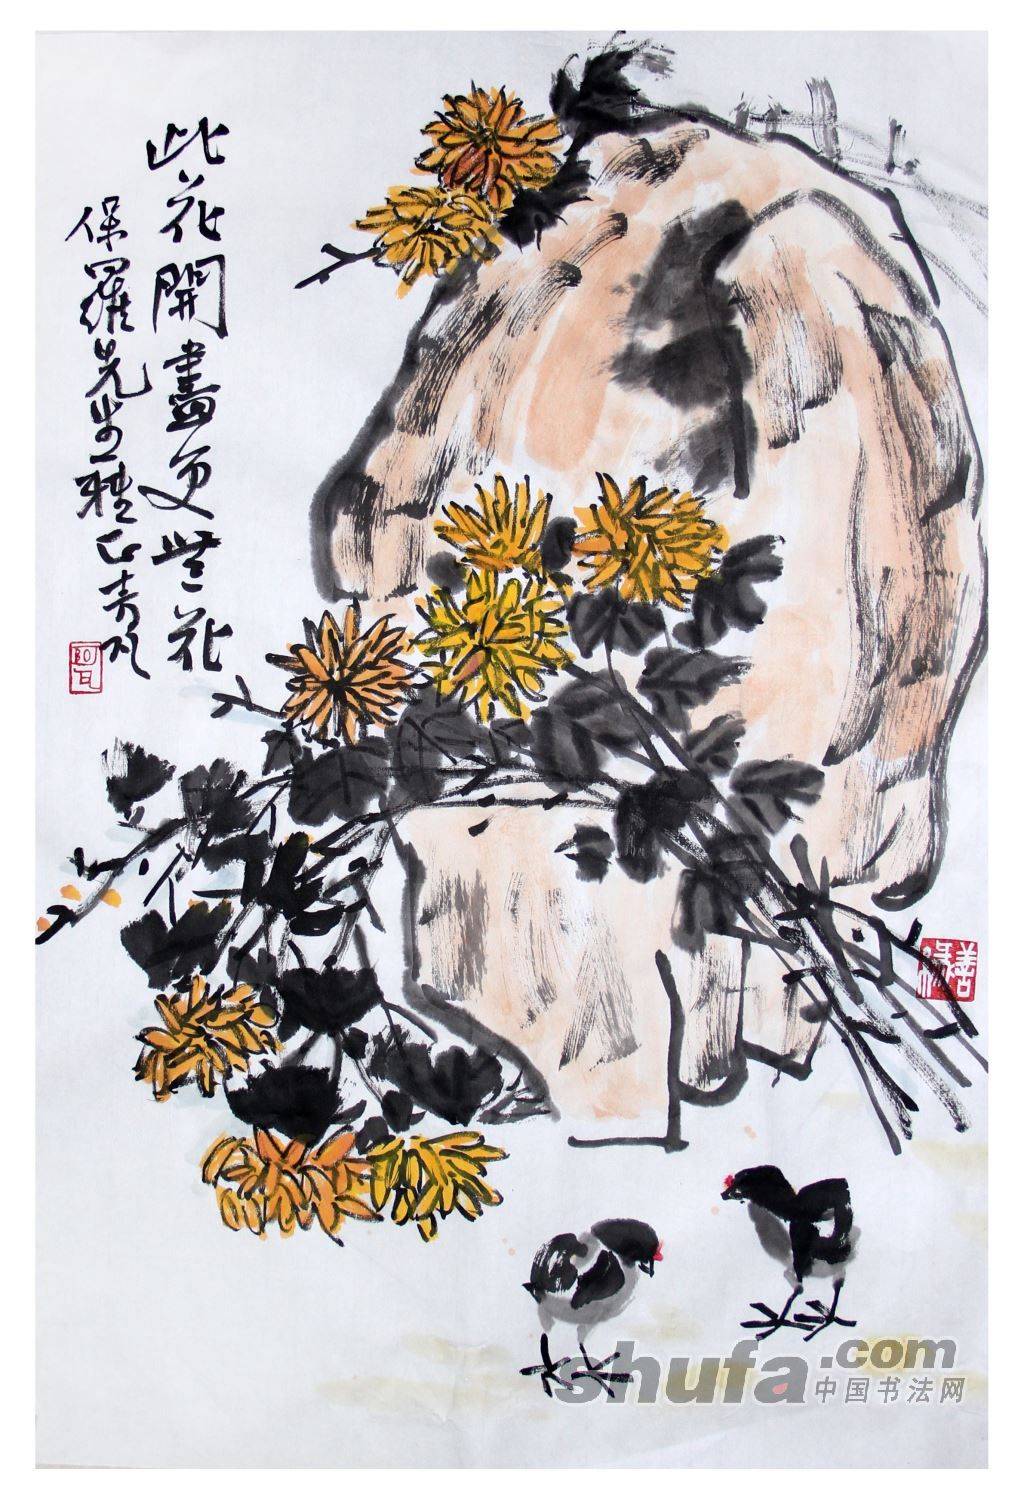 此花開盡更無花
保羅先生雅正
shufa.com
中国书法网